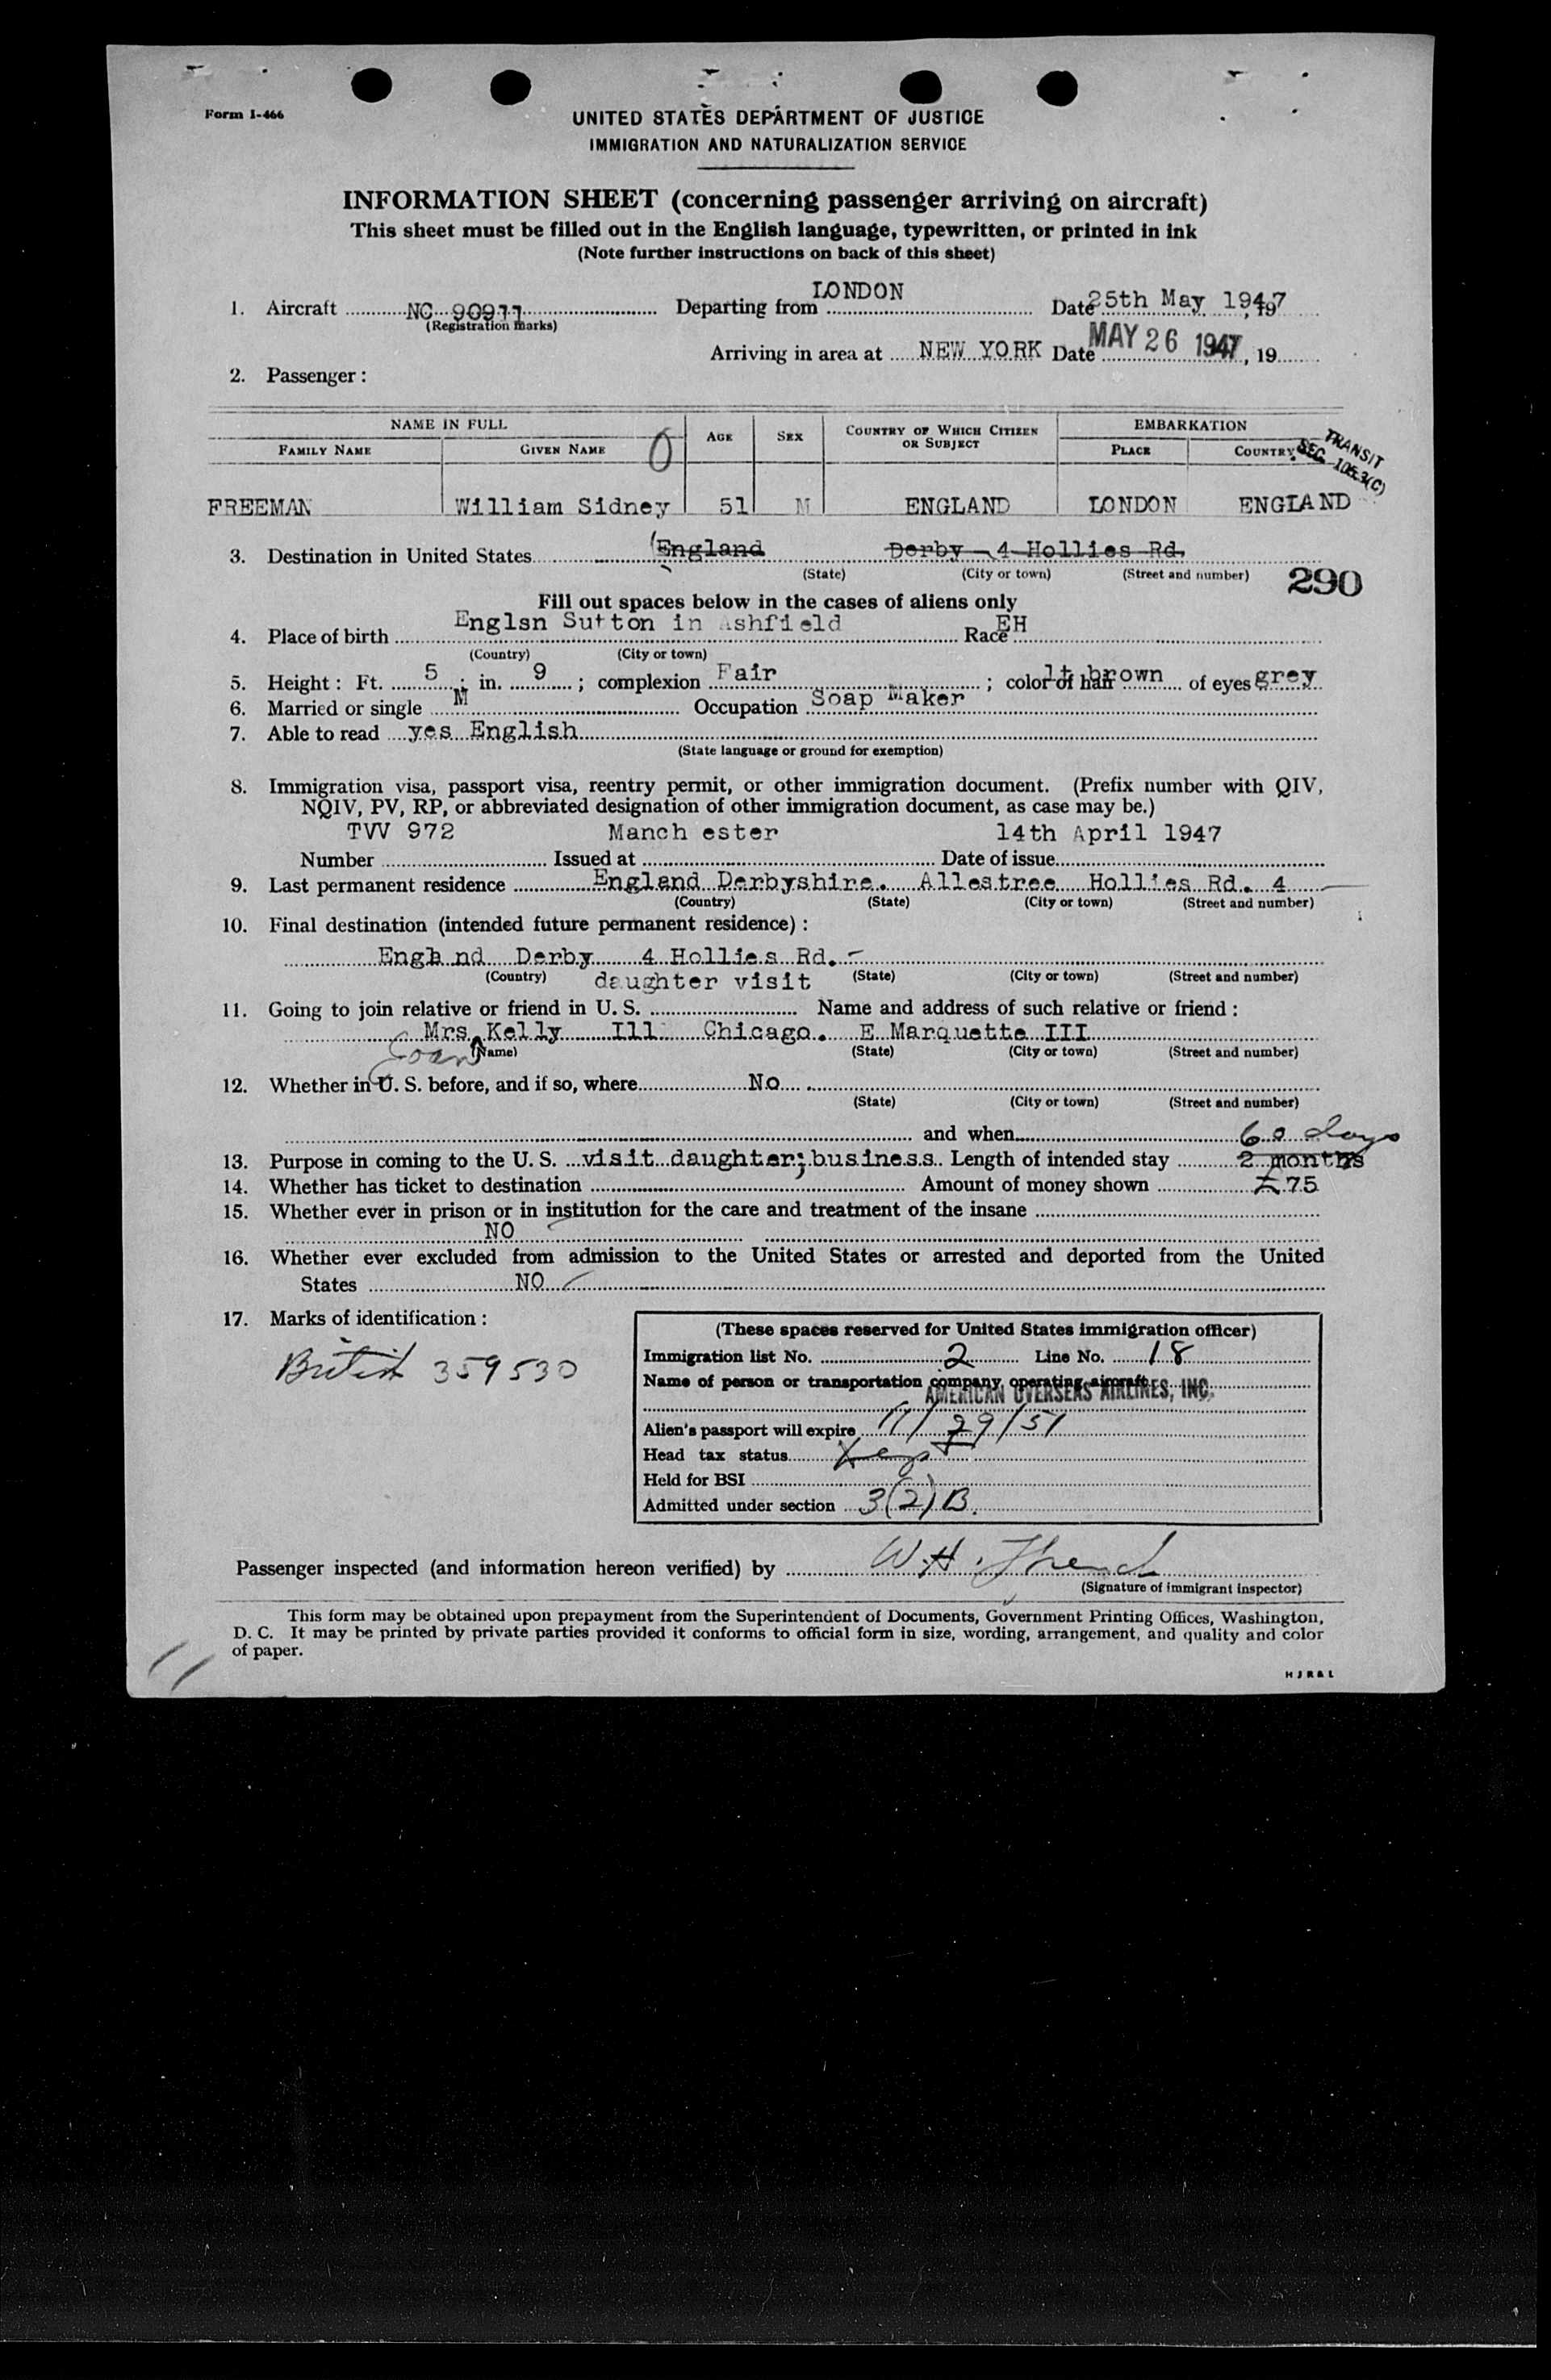 Form I-466
UNITED STATES DEPARTMENT OF JUSTICE
IMMIGRATION AND NATURALIZATION SERVICE
INFORMATION SHEET (concerning passenger arriving on aircraft)
This sheet must be filled out in the English language, typewritten, or printed in ink
(Note further instructions on back of this sheet)
1. Aircraft NC 90911 Departing from LONDON Date 25th May 1947, 19
(Registration marks)
Arriving in area at NEW YORK Date MAY 26 1947, 19
2. Passenger:
NAME IN FULL AGE SEX COUNTRY OF WHICH CITIZEN OR SUBJECT EMBARKATION
FAMILY NAME GIVEN NAME 0 PLACE COUNTRY TRANSIT SEC. 105.3(C)
FREEMAN William Sidney 51 M ENGLAND LONDON ENGLAND
3. Destination in United States England Derby - 4 Hollies Rd.
(State) (City or town) (Street and number) 290
Fill out spaces below in the cases of aliens only
4. Place of birth Englsn Sutton in Ashfield Race EH
(Country) (City or town)
5. Height: Ft. 5; in. 9; complexion Fair; color of hair lt brown of eyes grey
6. Married or single M Occupation Soap Maker
7. Able to read yes English
(State language or ground for exemption)
8. Immigration visa, passport visa, reentry permit, or other immigration document. (Prefix number with QIV,
NQIV, PV, RP, or abbreviated designation of other immigration document, as case may be.)
TVV 972 Manch ester 14th April 1947
Number Issued at Date of issue
9. Last permanent residence England Derbyshire. Allestree Hollies Rd. 4
(Country) (State) (City or town) (Street and number)
10. Final destination (intended future permanent residence):
Engla nd Derby 4 Hollies Rd. -
(Country) daughter visit (State) (City or town) (Street and number)
11. Going to join relative or friend in U. S. Name and address of such relative or friend:
Mrs Kelly Ill Chicago. E Marquette III
Joan (Name) (State) (City or town) (Street and number)
12. Whether in U. S. before, and if so, where No
(State) (City or town) (Street and number)
and when 60 days
13. Purpose in coming to the U. S. visit daughter; business Length of intended stay 2 months
14. Whether has ticket to destination Amount of money shown £75
15. Whether ever in prison or in institution for the care and treatment of the insane
NO
16. Whether ever excluded from admission to the United States or arrested and deported from the United
States NO
17. Marks of identification:
British 359530
(These spaces reserved for United States immigration officer)
Immigration list No. 2 Line No. 18
Name of person or transportation company operating aircraft
AMERICAN OVERSEAS AIRLINES, INC.
Alien's passport will expire 11/29/51
Head tax status
Held for BSI
Admitted under section 3(2)B.
Passenger inspected (and information hereon verified) by W.H.
(Signature of immigrant inspector)
This form may be obtained upon prepayment from the Superintendent of Documents, Government Printing Offices, Washington,
D. C. It may be printed by private parties provided it conforms to official form in size, wording, arrangement, and quality and color
of paper.
H J R & L